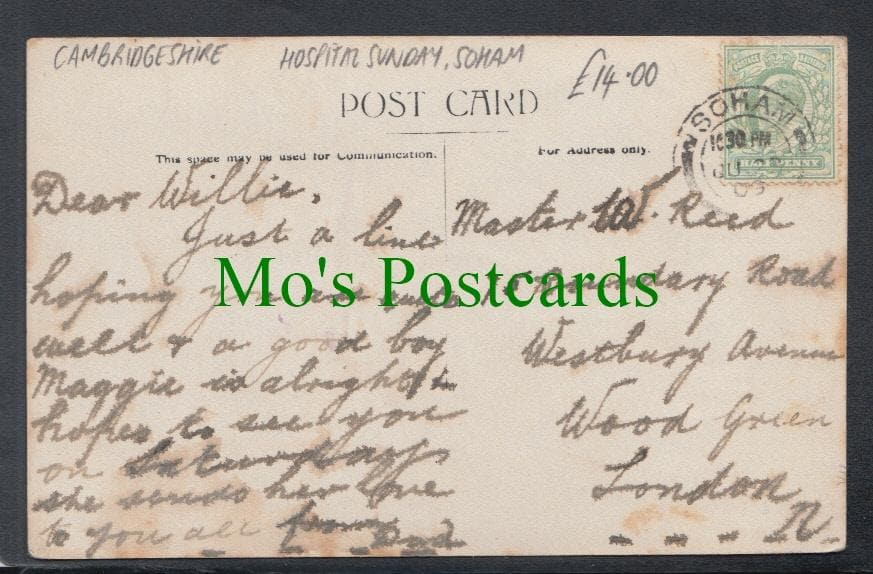 CAMBRIDGESHIRE HOSPITAL SUNDAY, SOHAM £14.00
POST CARD
SOHAM
10.30 PM
HALFPENNY
This space may be used for Communication.
For Address only.
Dear Willie,
Just a line
hoping you are quite
well & a good boy
Maggie is alright &
hopes to see you
on Saturday
she sends her love
to you all from Dad
Master W. Reed
15 Boundary Road
Westbury Avenue
Wood Green
London
N.
Mo's Postcards